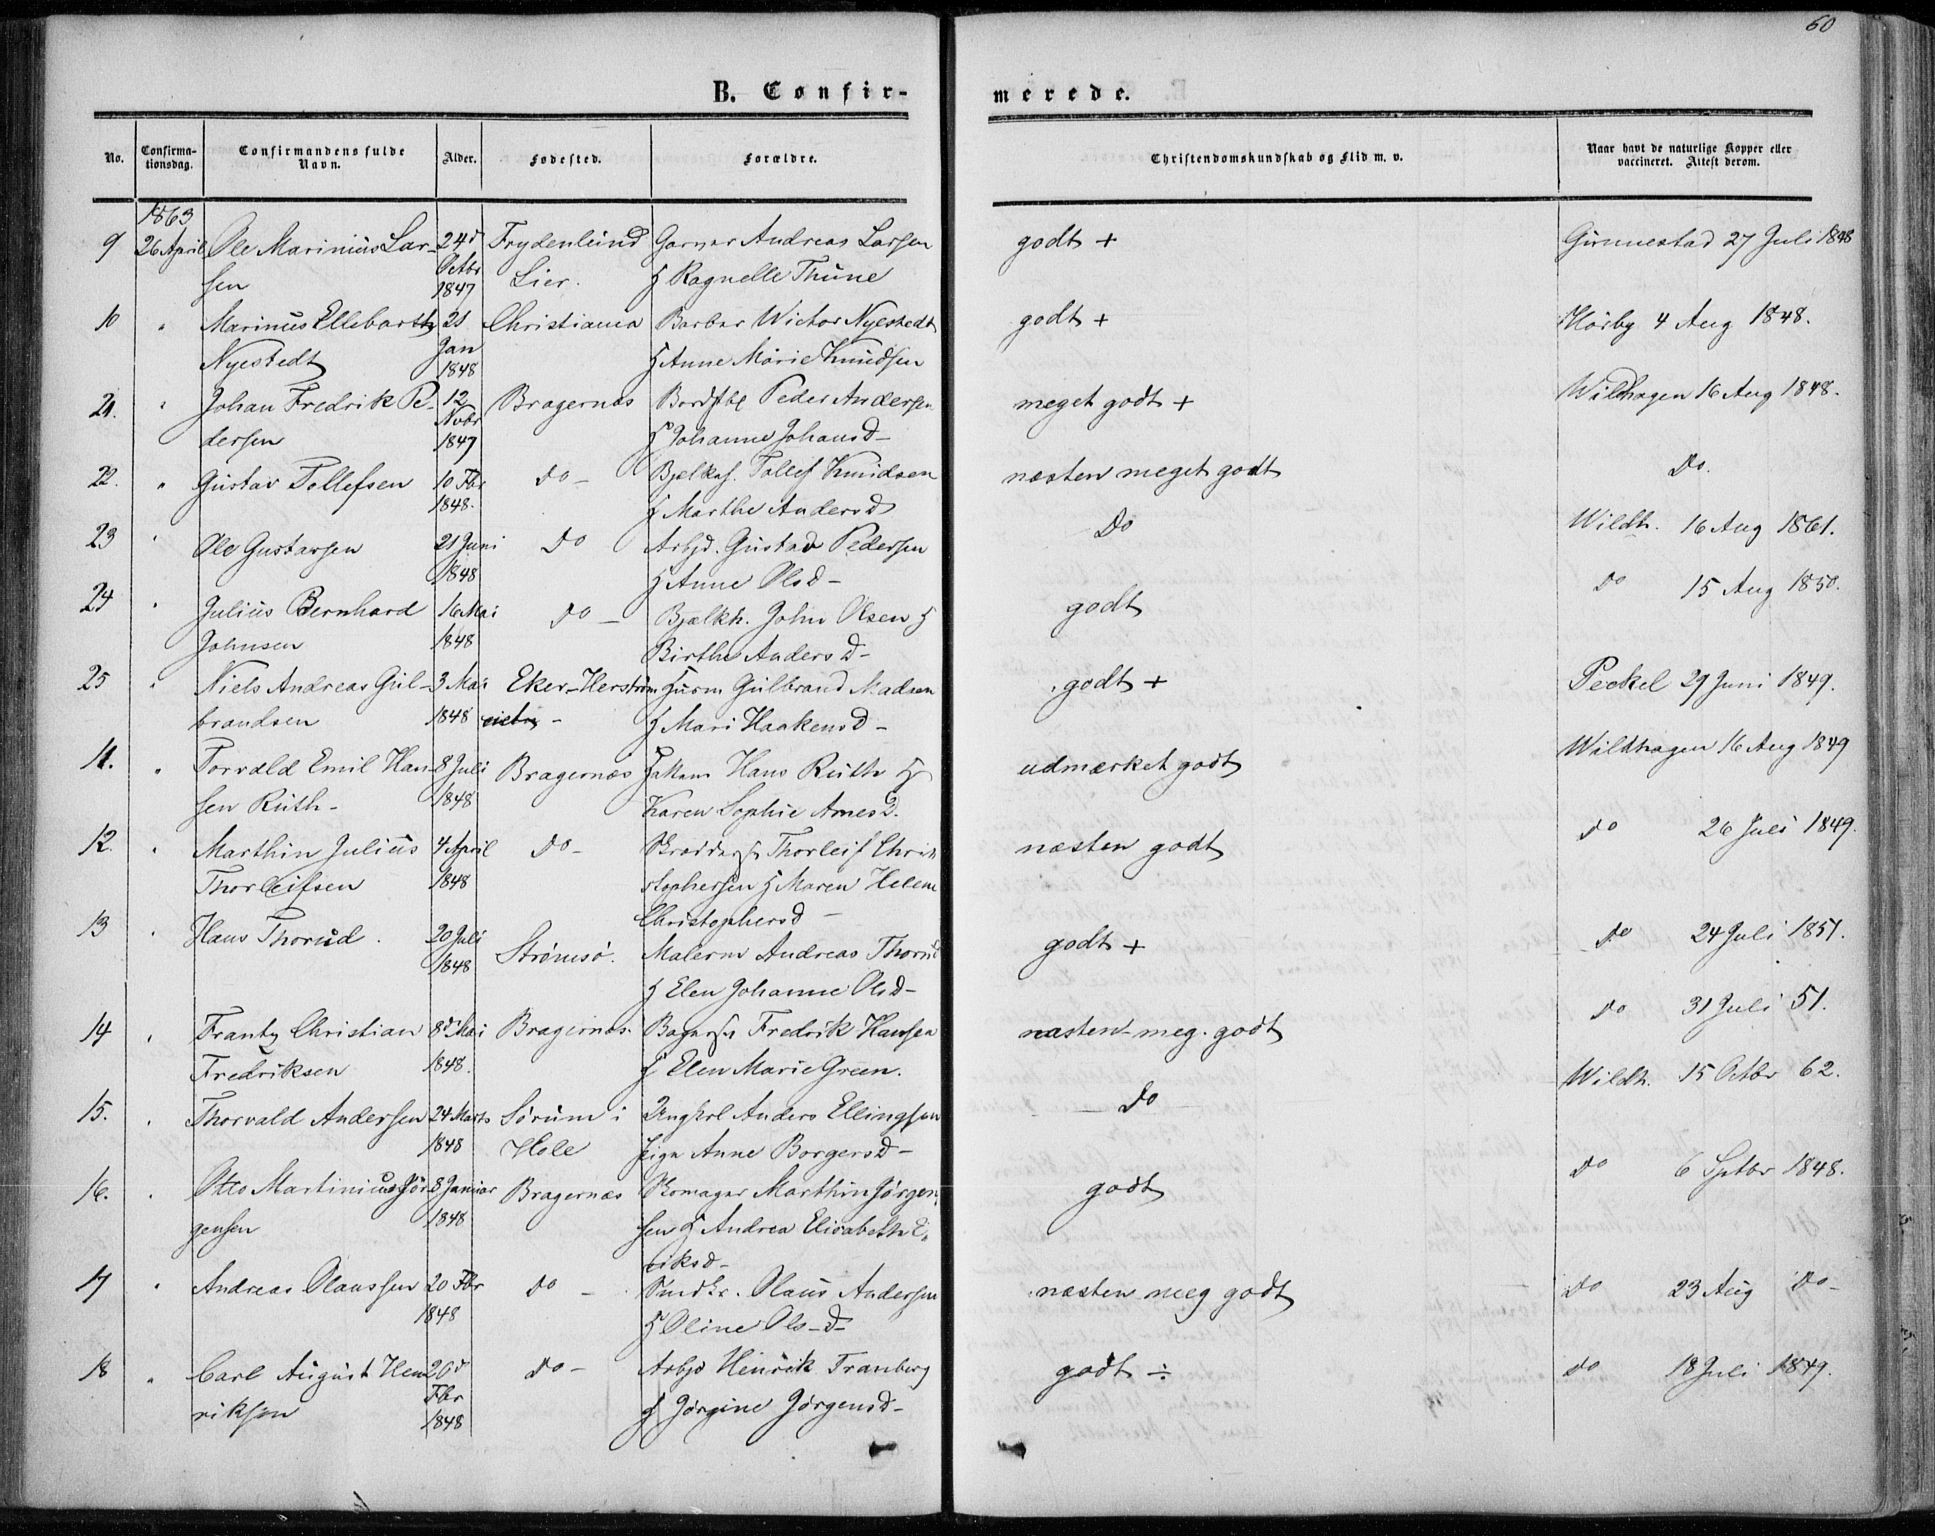 60
B. Confir-
merede.
No.
Confirma-
tionsdag.
Confirmandens fulde
Navn.
Alder.
Fødested.
Forældre.
Christendomskundskab og Flid m. v.
Naar havt de naturlige Kopper eller
vaccineret. Attest derom.
1863
9 26 April Ole Marinius Lar- 24d Frydenlund Garver Andreas Larsen godt + Gunnestad 27 Juli 1848
sen Octbr Lier. & Ragnelle Thune
1847
10 " Marinus Ellebarth 21 Christiania Barber Victor Nyestedt godt + Hørby 4 Aug 1848.
Nyestedt Jan & Anne Marie Knudsen
1848
21. " Johan Fredrik Pe- 12 Bragernæs Peder Andersen meget godt + Wildhagen 16 Aug 1848.
dersen Novbr & Johanne Johansd-
1847
22. " Gustav Tollefsen 10 Fbr do- Tollef Knudsen næsten meget godt Do.
1848. & Marthe Andersd
23 " Ole Gustavsen 21 Juni Do Arbjd. Gustav Pedersen Do Wildh. 16 Aug 1861.
1848 & Anne Olsd-
24 " Julius Bernhard 16 Mai do- Bjælkh. John Olsen & godt do 15 Aug 1850.
Johnsen 1848 Birthe Andersd-
25 " Niels Andreas Gul- 3 Mai Eker- Gulbrand Madsen godt + Peckel 29 Juni 1849.
brandsen 1848 & Mari Haakensd-
11. " Torvald Emil Han- 8 Juli Bragernæs Hans Ruth & udmærket godt Wildhagen 16 Aug 1849
sen Ruth- 1848 Karen Sophie Arnesd.
12. " Marthin Julius 4 April do- Thorleif Chri- næsten godt do 26 Juli 1849.
Thorleifsen 1848 stophersen & Maren Helene
Christophersd-
13 " Hans Thorud. 20 Juli Strømsø. Malerm Andreas Thorud godt + do 24 Juli 1851.
1848 & Elen Johanne Olsd-
14 " Frantz Christian 8d Mai Bragernæs Fredrik Hansen næsten meg. godt do 31 Juli 51.
Fredriksen 1848. & Elen Marie Green.
15. " Thorvald Andersen 24 Marts Sørum i Ungkrl Anders Ellingsen do Wildh. 15 Octbr 62.
1848 Hole Pige Anne Borgersd-
16. " Otto Martinius Jør- 8 Januar Bragernæs Skomager Marthin Jørgen- godt do 6 Sptbr 1848.
gensen 1848 sen & Andrea Elisabeth E-
riksd-
17 " Andreas Olaussen 20 Fbr do- Smdkr. Olaus Andersen næsten meg godt do 23 Aug do-
1848 & Oline Ols-d-
18 " Carl August Hen- 20d do- Arbjd Henrik Tranberg godt ÷ do 18 Juli 1849.
riksen Fbr & Jørgine Jørgensd-
1848